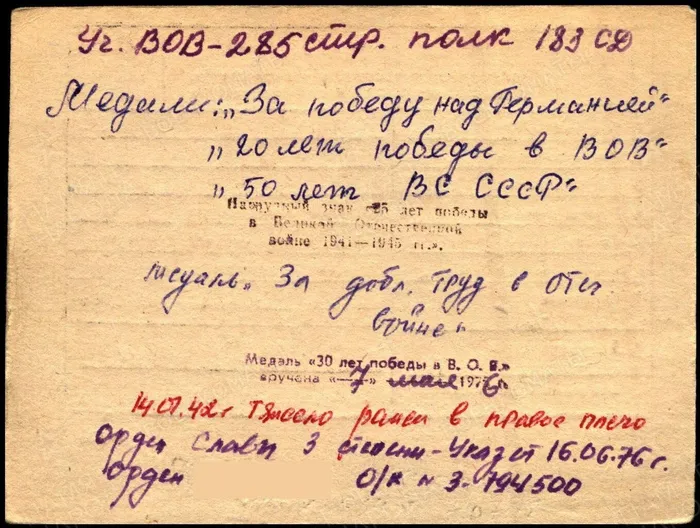 Уч. ВОВ-285 стр. полк 183 СД
Медали: „За победу над Германией“
„20 лет победы в ВОВ“
„50 лет ВС СССР“
Нагрудный знак «25 лет победы
в Великой Отечественной
войне 1941—1945 гг.».
медаль„ За добл. труд в отеч
войне“
Медаль «30 лет победы в В. О. В.»
вручена «—7—» мая 1976г.
14.01.42г Тяжело ранен в правое плечо
орден Славы 3 степени-Указ от 16.06.76 г.
орден О/к № 3-794500